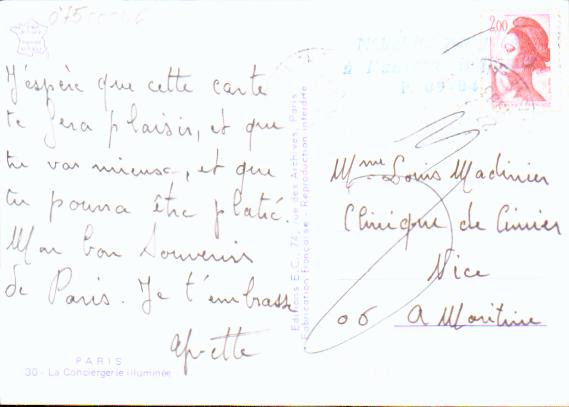 J'espère que cette carte
te fera plaisir, et que
tu vas mieux, et que
tu pourra être platré.
Mon bon Souvenir
de Paris. Je t'embrasse
PARIS
30 - La Conciergerie illuminée
Editions E.C., 74, rue des Archives, Paris
Fabrication française - Reproduction interdite
2,00
Mme Louis Madinier
Clinique de Cimiez
Nice
06 A Maritime